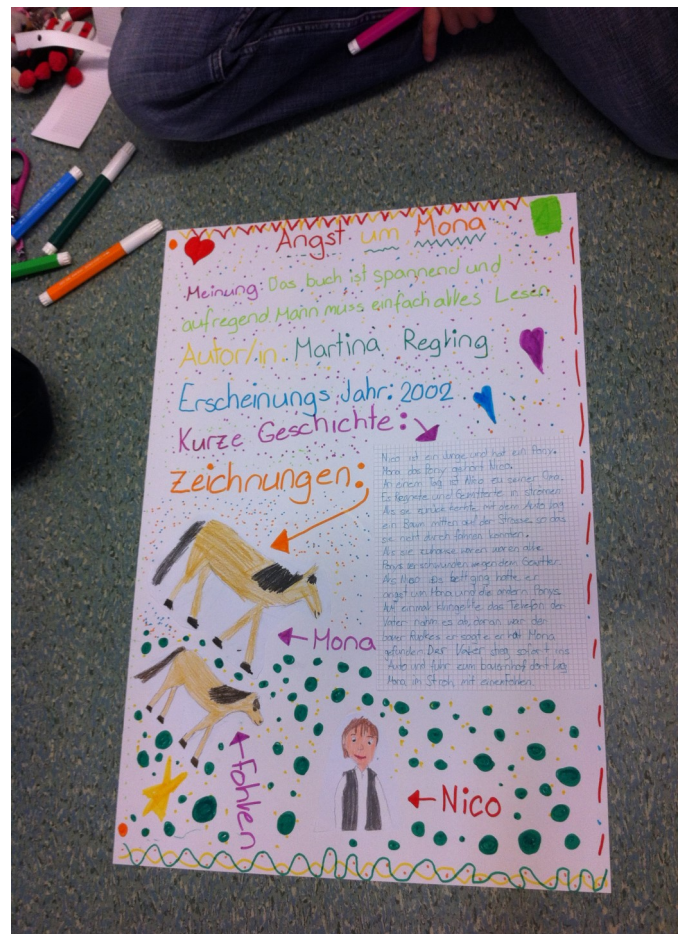 Angst um Mona
Meinung: Das buch ist spannend und
aufregend Mann muss einfach alles Lesen
Autor/in: Martina Regling
Erscheinungs Jahr: 2002
Kurze Geschichte:
Zeichnungen:
Nico ist ein Junge und hat ein Pony.
Mona das Pony gehört Nico.
An einem Tag ist Nico zu seiner Oma.
Es Regnete und Gewitterte in strömen
Als sie zurück kehrte mit dem Auto lag
ein Baum mitten auf der Strasse so das
sie nicht durch fahren konnten.
Als sie zuhause waren waren alle
Ponys verschwunden wegen dem Gewitter.
Als Nico ins bett ging hatte er
angst um Mona und die andern Ponys
Auf einmal klingelte das Telefon der
Vater nahm es ab, daran war der
bauer er sagte er hat Mona
gefunden Der Vater stieg sofort ins
Auto und fuhr zum bauernhof dort lag
Mona im Stroh mit einem fohlen
Mona
Fohlen
Nico